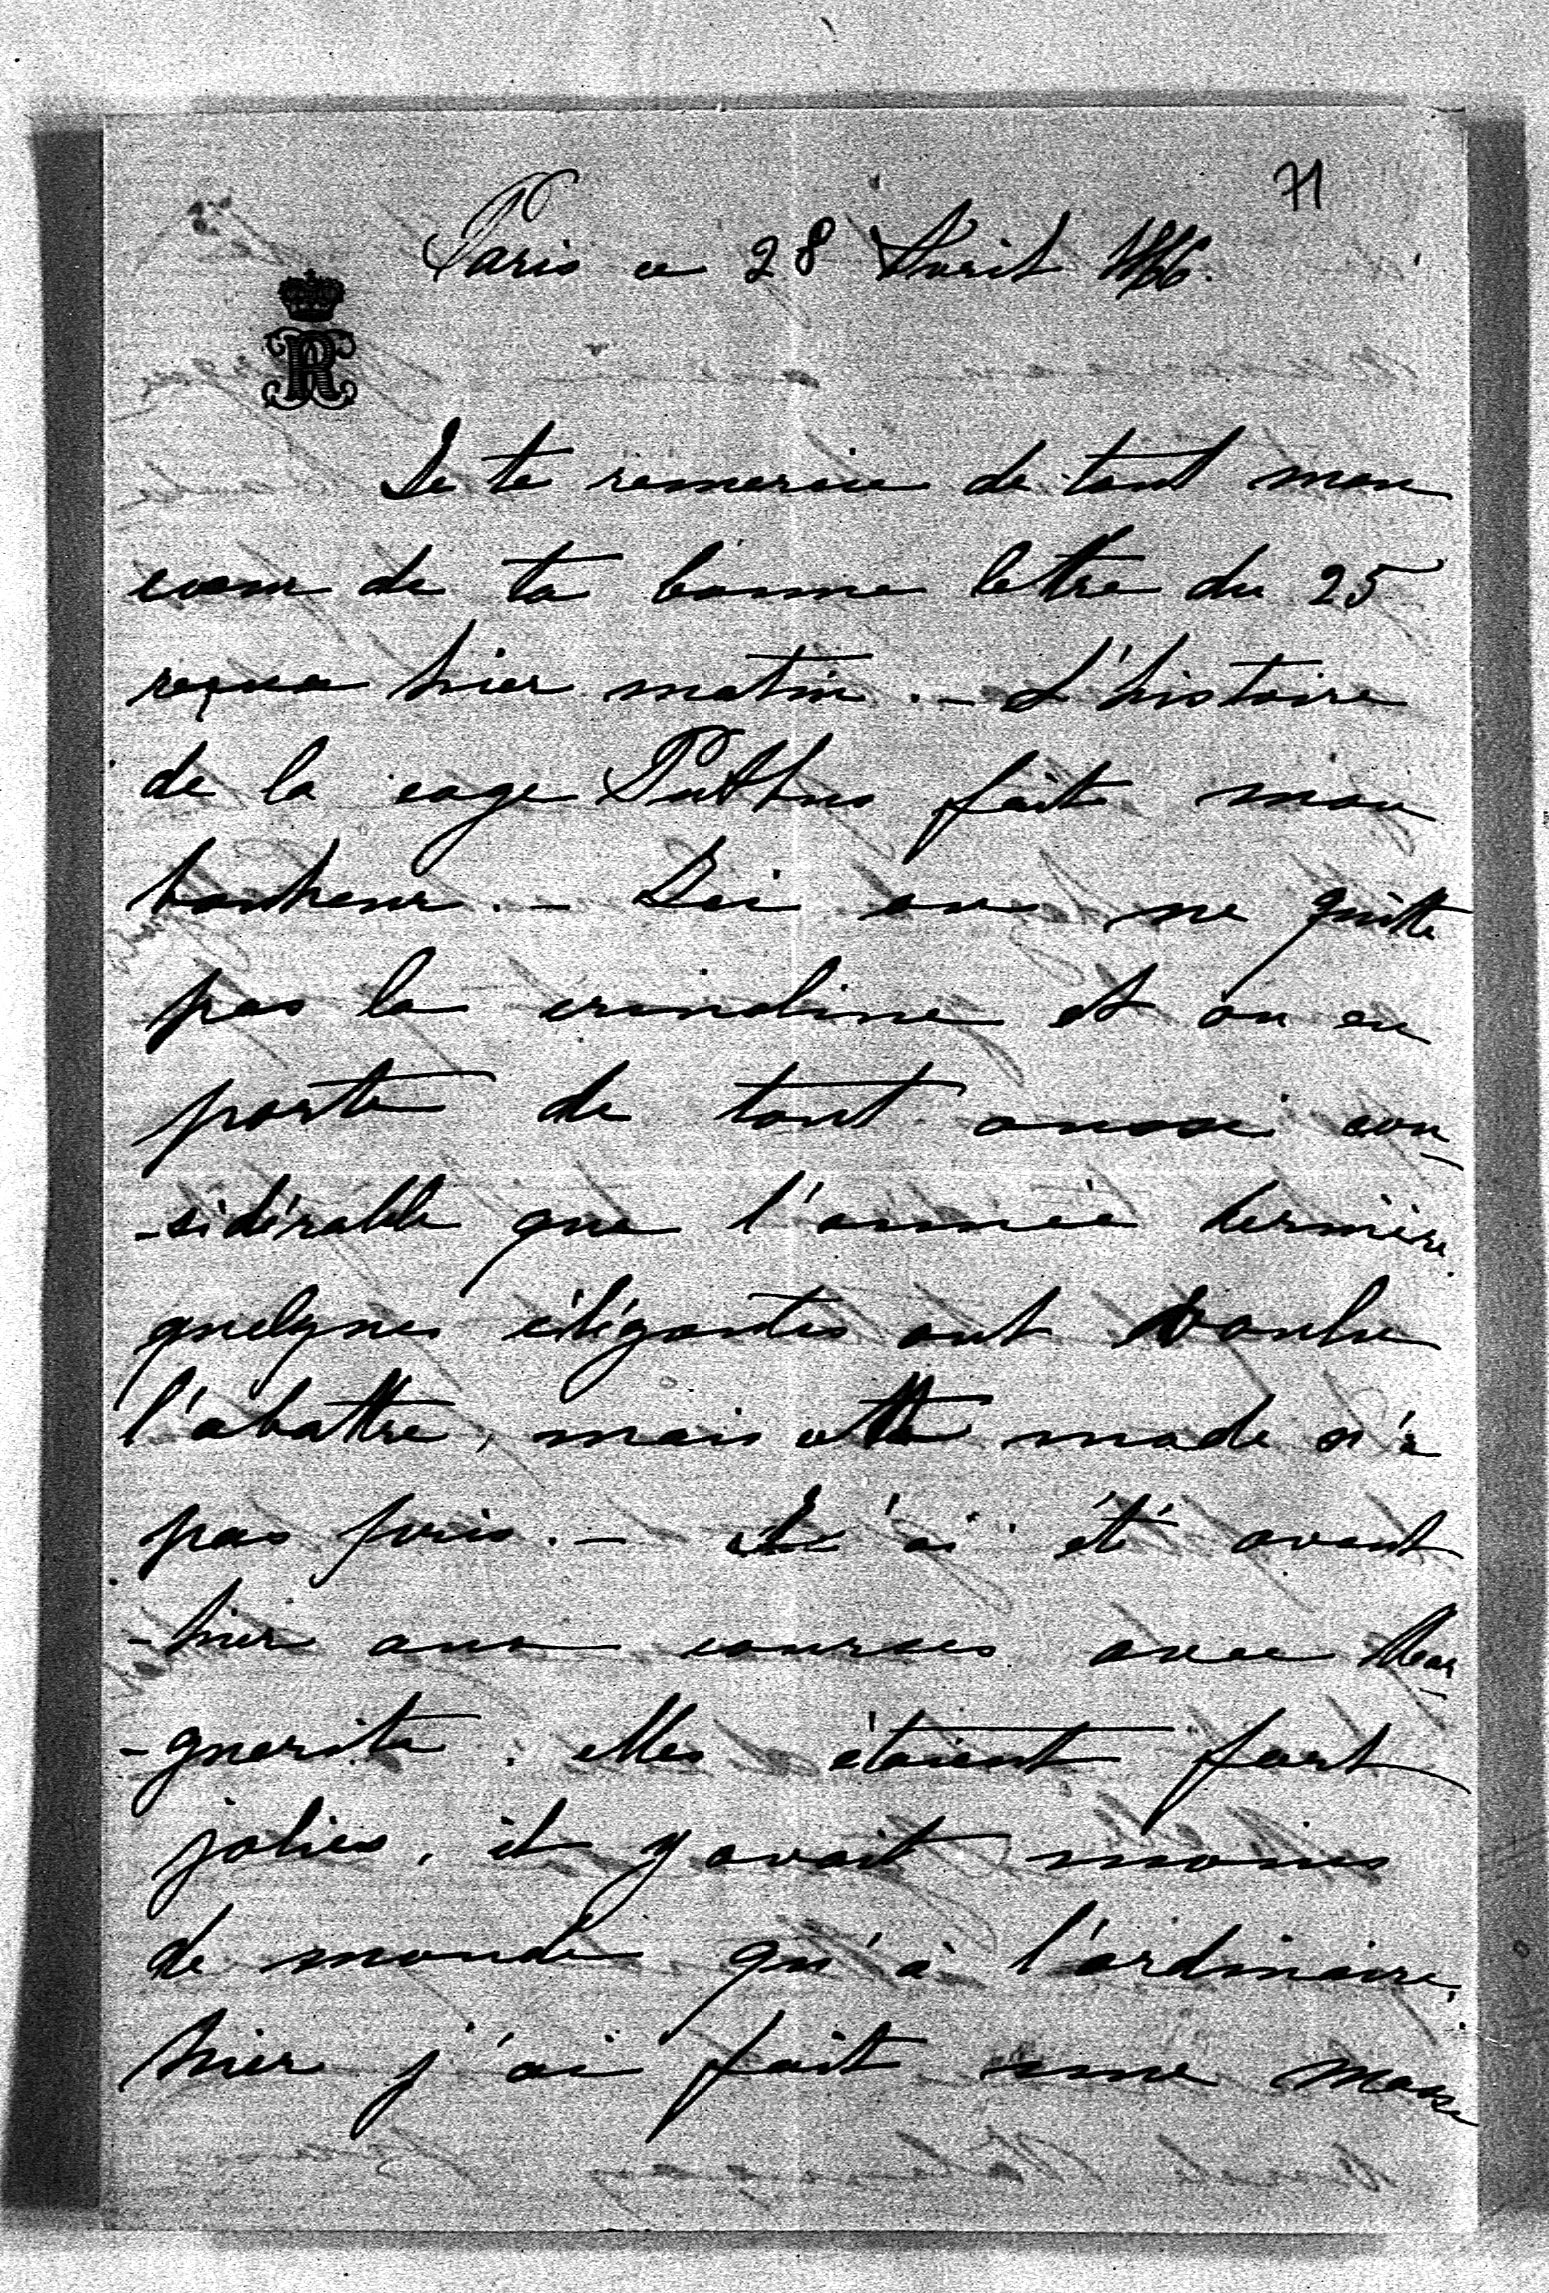 71
Paris ce 28 Avril 1866.
R
Je te remercie de tout mon
coeur de ta bonne lettre du 25
reçue hier matin. - L'histoire
de la cage fait mon
bonheur. - Ici on ne quitte
pas la crinoline et on en
porte de tout aussi con
-sidérable que l'année dernière
quelques élégantes ont voulu
l'abattre, mais cette mode n'a
pas pris. - J'ai été avant
-hier aux courses avec Mar
-guerite, elles étaient fort
jolies, il y avait moins
de monde qu'à l'ordinaire,
hier j'ai fait une masse